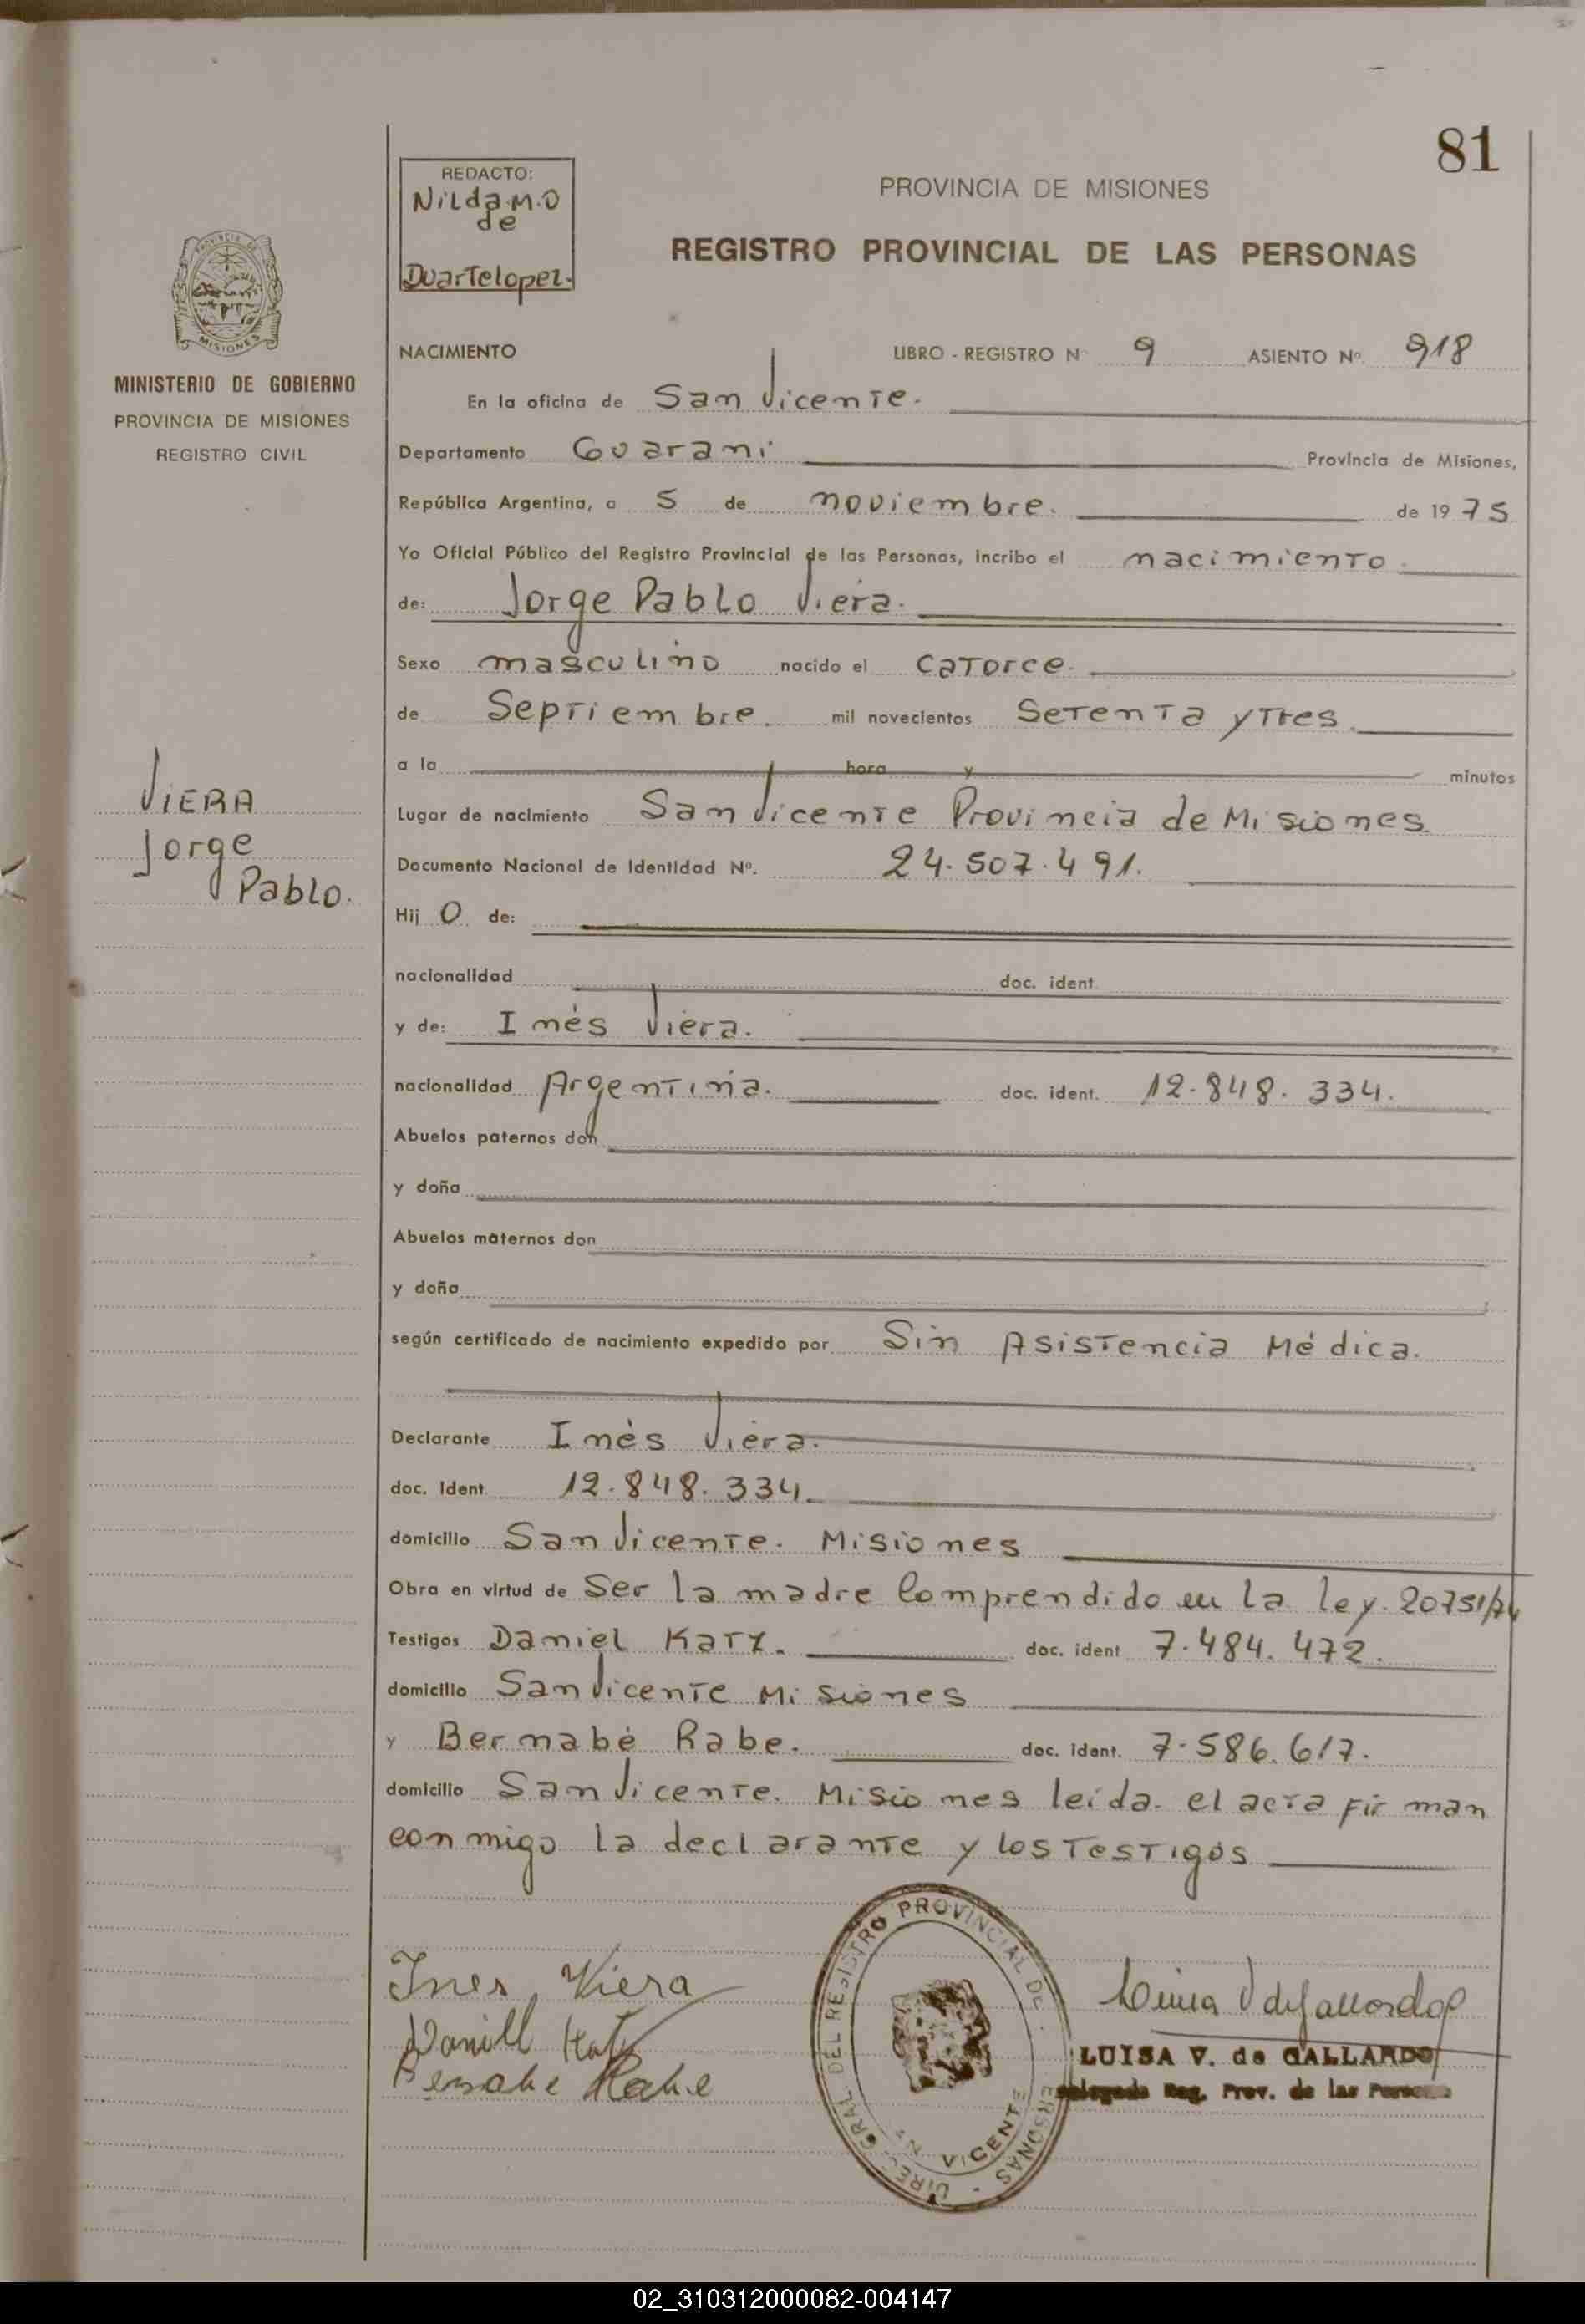 81
REDACTO:
Nilda M.O
de
Duartelopez.
PROVINCIA DE MISIONES
REGISTRO PROVINCIAL DE LAS PERSONAS
MISIONES
MINISTERIO DE GOBIERNO
PROVINCIA DE MISIONES
REGISTRO CIVIL
NACIMIENTO LIBRO - REGISTRO N 9 ASIENTO Nº. 918
En la oficina de San Vicente.
Departamento Guarani Provincia de Misiones,
República Argentina, a 5 de noviembre. de 1975
Yo Oficial Público del Registro Provincial de las Personas, incribo el nacimiento.
de: Jorge Pablo Viera.
Sexo masculino nacido el catorce.
de Septiembre. mil novecientos Setenta y Tres.
a la hora y minutos
VIERA
Jorge
Pablo.
Lugar de nacimiento San Vicente Provincia de Misiones.
Documento Nacional de Identidad Nº. 24.507.491.
Hij O de:
nacionalidad doc. ident.
y de: Inés Viera.
nacionalidad Argentina. doc. ident. 12.848.334.
Abuelos paternos don
y doña
Abuelos maternos don
y doña
según certificado de nacimiento expedido por Sin Asistencia Médica.
Declarante Inés Viera.
doc. Ident. 12.848.334.
domicilio San Vicente. Misiones
Obra en virtud de Ser la madre Comprendido en la ley. 20751/74
Testigos Daniel Katz. doc. ident 7.484.472.
domicilio San Vicente Misiones
y Bernabé Rabe. doc. ident. 7.586.617.
domicilio San Vicente. Misiones leída el acta firman
conmigo la declarante y los Testigos
Ines Viera
Daniel Katz
Bernabe Rabe
DIREC. GRAL DEL REGISTRO PROVINCIAL DE PERSONAS
VICENTE
Luisa V de Gallardo
LUISA V. de GALLARDO
Delegada Reg. Prov. de las Personas
02_310312000082-004147